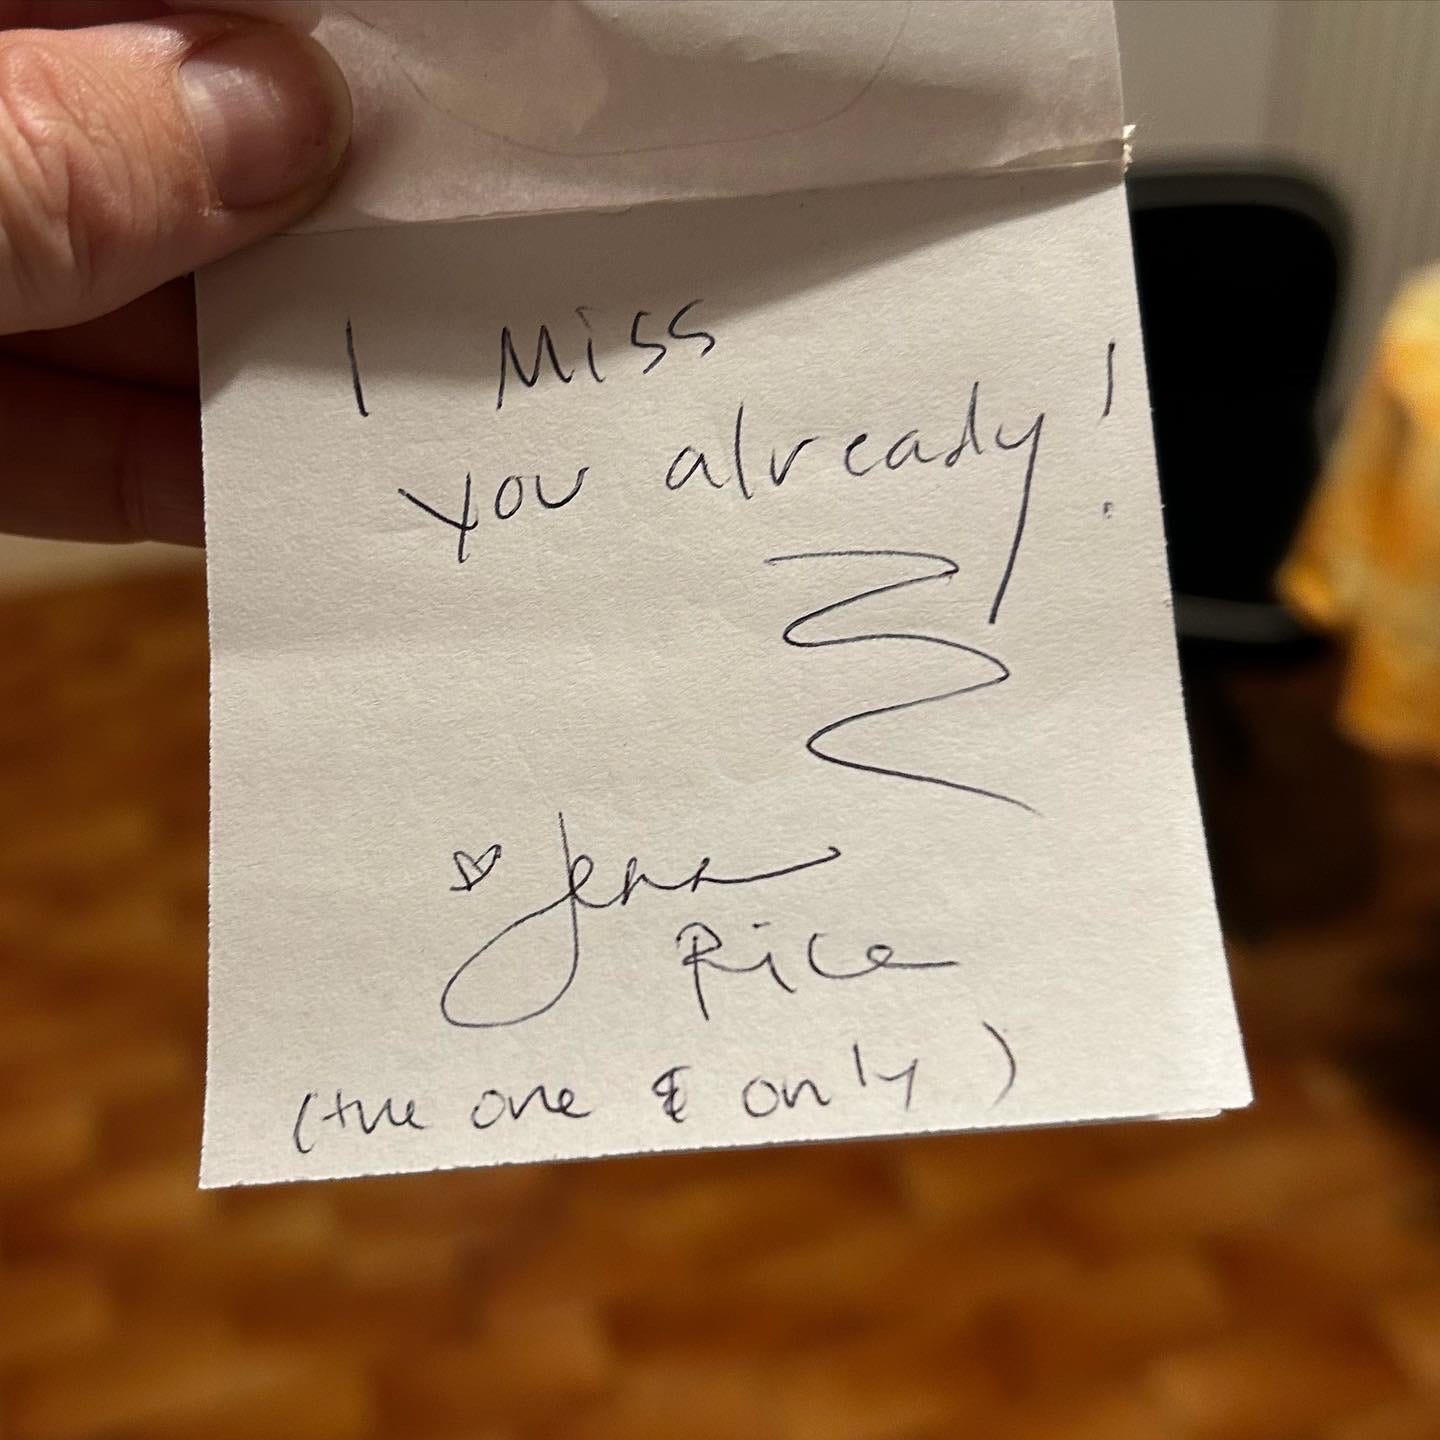 I Miss
you already!
Jenna
Rice
(the one & only)